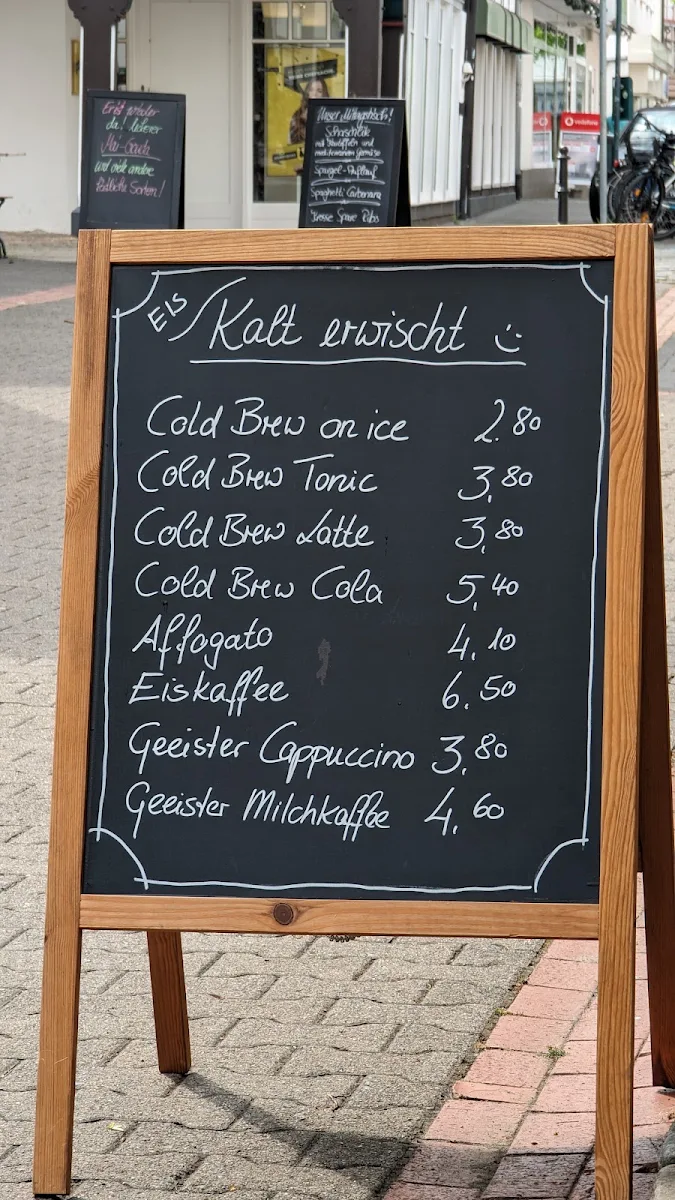 Erist wieder
da! leckerer
Mai-Gouda
und viele andere
Köstliche Sorten!
Unser Mittagstisch!
mit und
Spargel-Auflauf
Spaghetti Carbonara
Spare Ribs
vodafone
Eis Kalt erwischt :)
Cold Brew on ice 2.80
Cold Brew Tonic 3,80
Cold Brew Latte 3,80
Cold Brew Cola 5,40
Affogato 4,10
Eiskaffee 6.50
Geeister Cappuccino 3,80
Geeister Milchkaffee 4,60